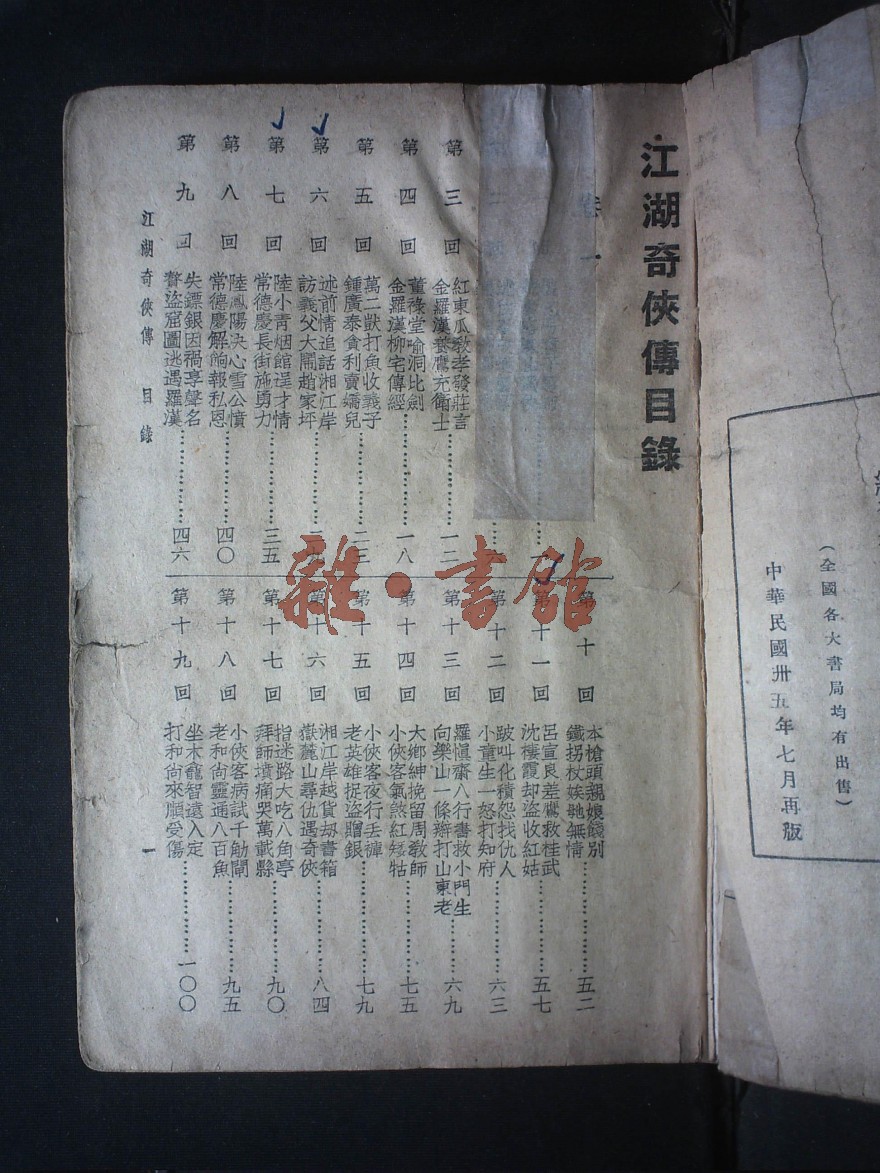 江湖奇俠傳目錄
卷一
第三回 紅東瓜敎孝發莊言 金羅漢養鷹充衛士 一二
第四回 董祿堂喻洞比劍 金羅漢柳宅傳經 一八
第五回 萬二獃打魚收義子 鍾廣泰貪利賣嬌兒 二三
第六回 述前情追話湘江岸 訪義父大鬧趙家坪
第七回 陸小青烟館逞才情 常德慶長街施勇力 三五
第八回 陸鳳陽決心雪公憤 常德慶解餉報私恩 四〇
第九回 失鏢銀因禍享聲名 瞽盜窟圖逃遇羅漢 四六
第十回 本槍頭親娘餞別 鐵拐杖娭毑無情 五二
第十一回 呂宣良差鷹救桂武 沈棲霞却盜收紅姑 五七
第十二回 跛叫化積怨找仇人 小童生一怒打知府 六三
第十三回 羅愼齋八行書救小門生 向樂山一條辮打山東老 六九
第十四回 大鄉紳挽留周敎師 小俠客氣煞紅矮牯 七五
第十五回 小俠客夜行丟褲 老英雄捉盜贈銀 七九
第十六回 湘江岸越貨刼書箱 嶽麓山尋仇遇奇俠 八四
第十七回 指迷路大吃八角亭 拜師墳痛哭萬載縣 九〇
第十八回 小俠客病試千觔閘 老和尙靈通八百魚 九五
第十九回 坐木龕智遠入定 打和尙來順受傷 一〇〇
江湖奇俠傳 目錄 一
雜·書館
(全國各大書局均有出售)
中華民國卅五年七月再版